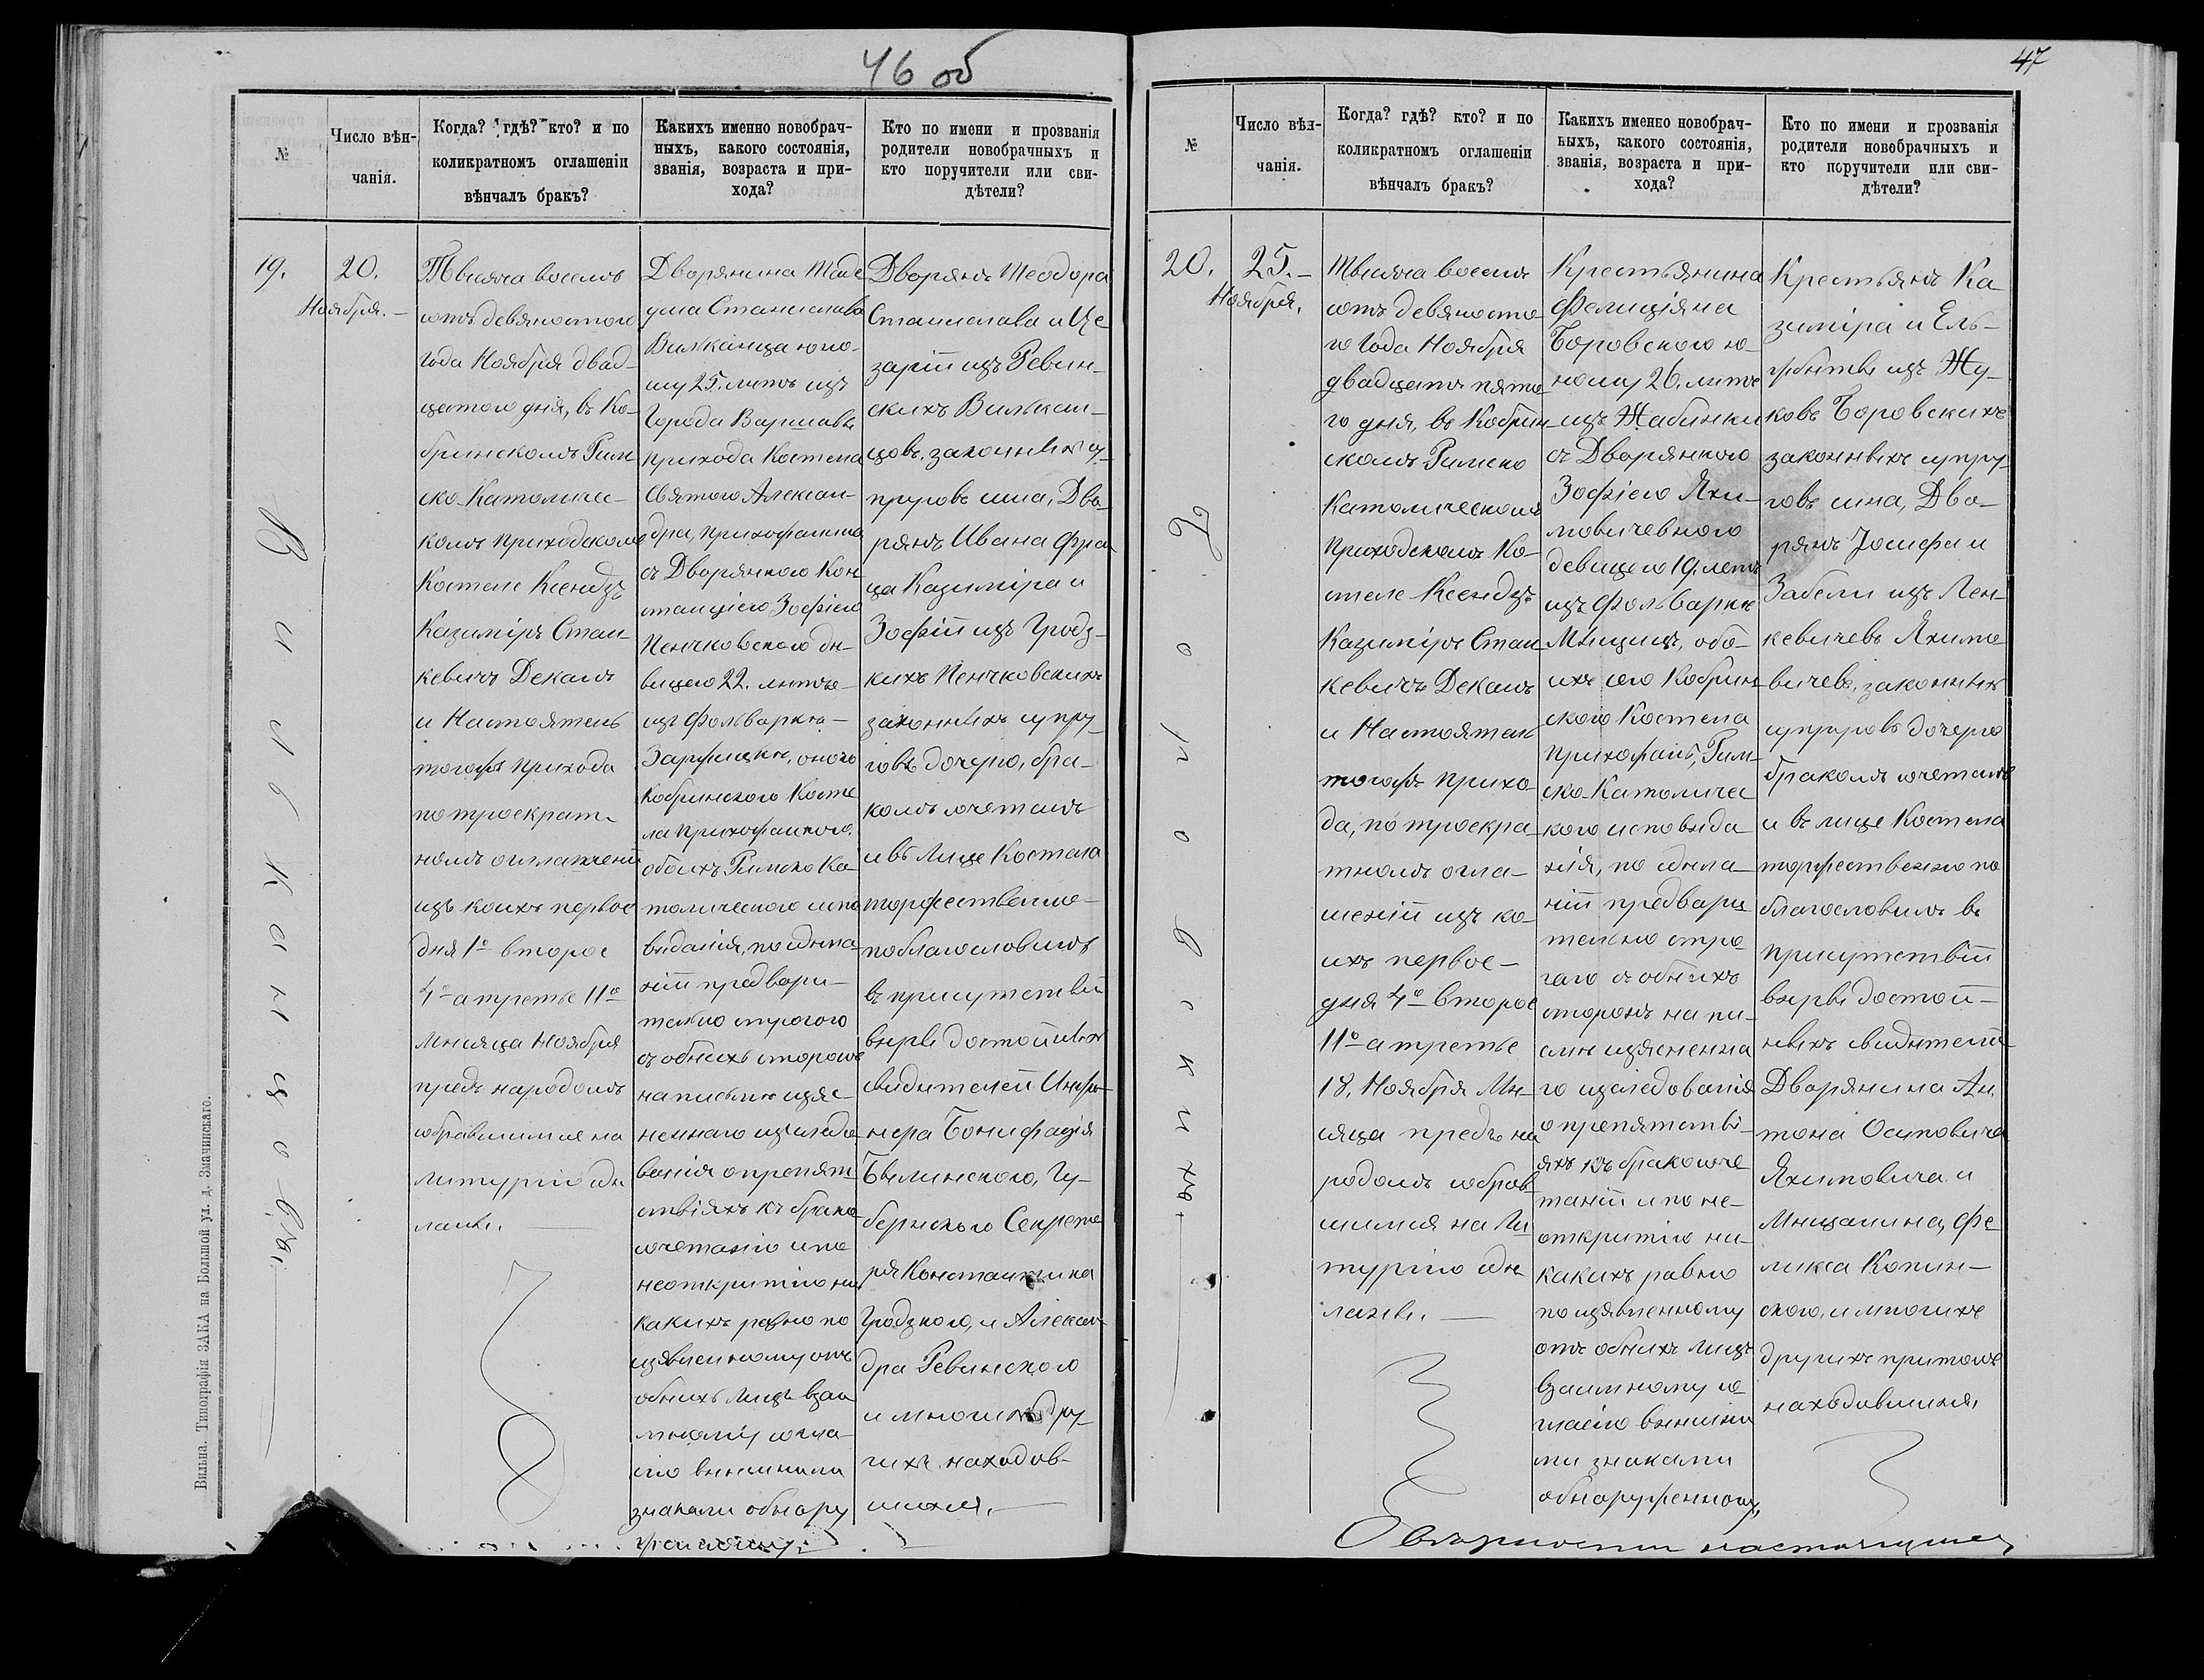 46 об
№
Число вѣн-
чанія.
Когда? гдѣ? кто? и по
коликратномъ оглашеніи
вѣнчалъ бракъ?
Какихъ именно новобрач-
ныхъ, какого состоянія,
званія, возраста и при-
хода?
Кто по имени и прозванія
родители новобрачныхъ и
кто поручители или сви-
дѣтели?
19.
Вильканцовъ.
20.
Ноября.
Тысяча восемь
сотъ девяностого
года Ноября двад-
цатого дня, въ Ко-
бринскомъ Рим
ско-Католичес-
комъ приходскомъ
Костеле Ксендзъ
Казиміръ Стан-
кевичъ Деканъ
и Настоятель
тогожъ прихода
по троекрат-
номъ оглашеніи
изъ коихъ первое
дня 1º второе
4º а третье 11º
Мнсяца Ноября
предъ народомъ
собравшимся на
литургію сдн
ланы.
Дворянина Таде
уша Станислава
Вильканца юно-
шу 25. лнтъ изъ
Города Варшавы
прихода Костела
Святого Алексан-
дра, прихожанина
съ Дворянкою Кон
станціею Зофіею
Пенчковскою дн-
вицею 22. лнтъ
изъ фольварка
оного
Кобринского Косте
ла прихожанкою,
обоихъ Римско Ка-
толического испо
вѣданія, по сдѣла-
ніи предвари-
тельно строгого
съ обнихъ сторонъ
на письмн изяс-
неннаго изследо
ванія о препят
ствіяхъ къ брако
сочетанію и по
неоткритію ни
какихъ равно по
изявленному отъ
обнихъ лицъ взаи
мному согла-
сію внешними
знаками обнару
женному.
Дворянъ Теодора
Станислава и Це
заріи изъ Ревин-
скихъ Вилькан-
цовъ, законныхъ су-
пруговъ сына, Дво-
рянъ Ивана Фран
ца Казиміра и
Зофіи изъ Гродз-
кихъ Пенчковскихъ
законныхъ супру-
говъ дочерю, бра-
комъ сочеталъ
и въ лице Костела
торжественно
поблагословилъ
въ присутствіи
вѣры достойныхъ
свидѣтелей Инже-
нера Бонифація
Былинского, Гу-
бернского Секрета
ря Константина
Гродзкого, и Алексан-
дра Ревинского
и многихъ дру-
гихъ находив-
шихся.
Вильна. Типографія ЗАКА на Большой ул. д. Значинскаго.
47
№
Число вѣн-
чанія.
Когда? гдѣ? кто? и по
коликратномъ оглашеніи
вѣнчалъ бракъ?
Какихъ именно новобрач-
ныхъ, какого состоянія,
званія, возраста и при-
хода?
Кто по имени и прозванія
родители новобрачныхъ и
кто поручители или сви-
дѣтели?
20.
Боровскихъ.
25.
Ноября.
Тысяча восемь
сотъ девяносто-
го Года Ноября
двадцать пято
го дня, въ Кобрин
скомъ Римско
Католическомъ
Приходскомъ Ко-
стеле Ксендзъ
Казиміръ Стан
кевичъ Деканъ
и Настоятель
тогожъ прихо-
да, по троекра-
тномъ огла-
шеніи изъ ко-
ихъ первое
дня 4º второе
11º а третье
18. Ноября Мн-
сяца предъ на
родомъ собрав-
шимся на Ли
тургію сдн
ланы.
Крестьянина
Фелиціяна
Боровского ю-
ношу 26. лнтъ
изъ Жабинки
съ Дворянкою
Зофіею Яхи-
мовичевною
девицею 19. летъ
изъ фольварка
Мнщицъ, обо-
ихъ сего Кобрин
ского Костела
прихожанъ, Рим-
ско-Католичес
кого исповѣда-
нія, по сдѣла-
ніи предвари
тельно стро-
гаго съ обнихъ
сторонъ на пи-
смн изясненна
го изследованія
о препятстві-
яхъ къ бракосоче
танію и по не-
откритію ни-
какихъ равно
по изявленному
отъ обнихъ лицъ
взаимному со-
гласію внешни
ми знаками
обнаруженному,
Крестьянъ Ка-
зиміра и Ель-
жбѣты изъ Жу-
ковъ Боровскихъ
законныхъ супру-
говъ сына, Дво-
рянъ Іосифа и
Забели изъ Лен-
кевичевъ Яхимо
вичевъ, законныхъ
супруговъ дочерю
бракомъ сочеталъ
и въ лице Костела
торжественно по
благословилъ въ
присутствіи
вѣры достой-
ныхъ свидѣтелей
Дворянина Ан-
тона Осиповича
Яхимовича и
Мнщанина, Фе
ликса Копин-
ского, и многихъ
другихъ притомъ
находившихся.
О вѣрности настоящей